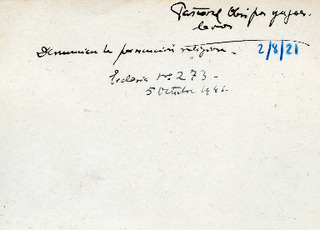 Pastoral Obispos yugoes-
lavos
2/8/21
Denuncian la persecución religiosa.
Ecclesia nº 273 -
5 Octubre 1946.